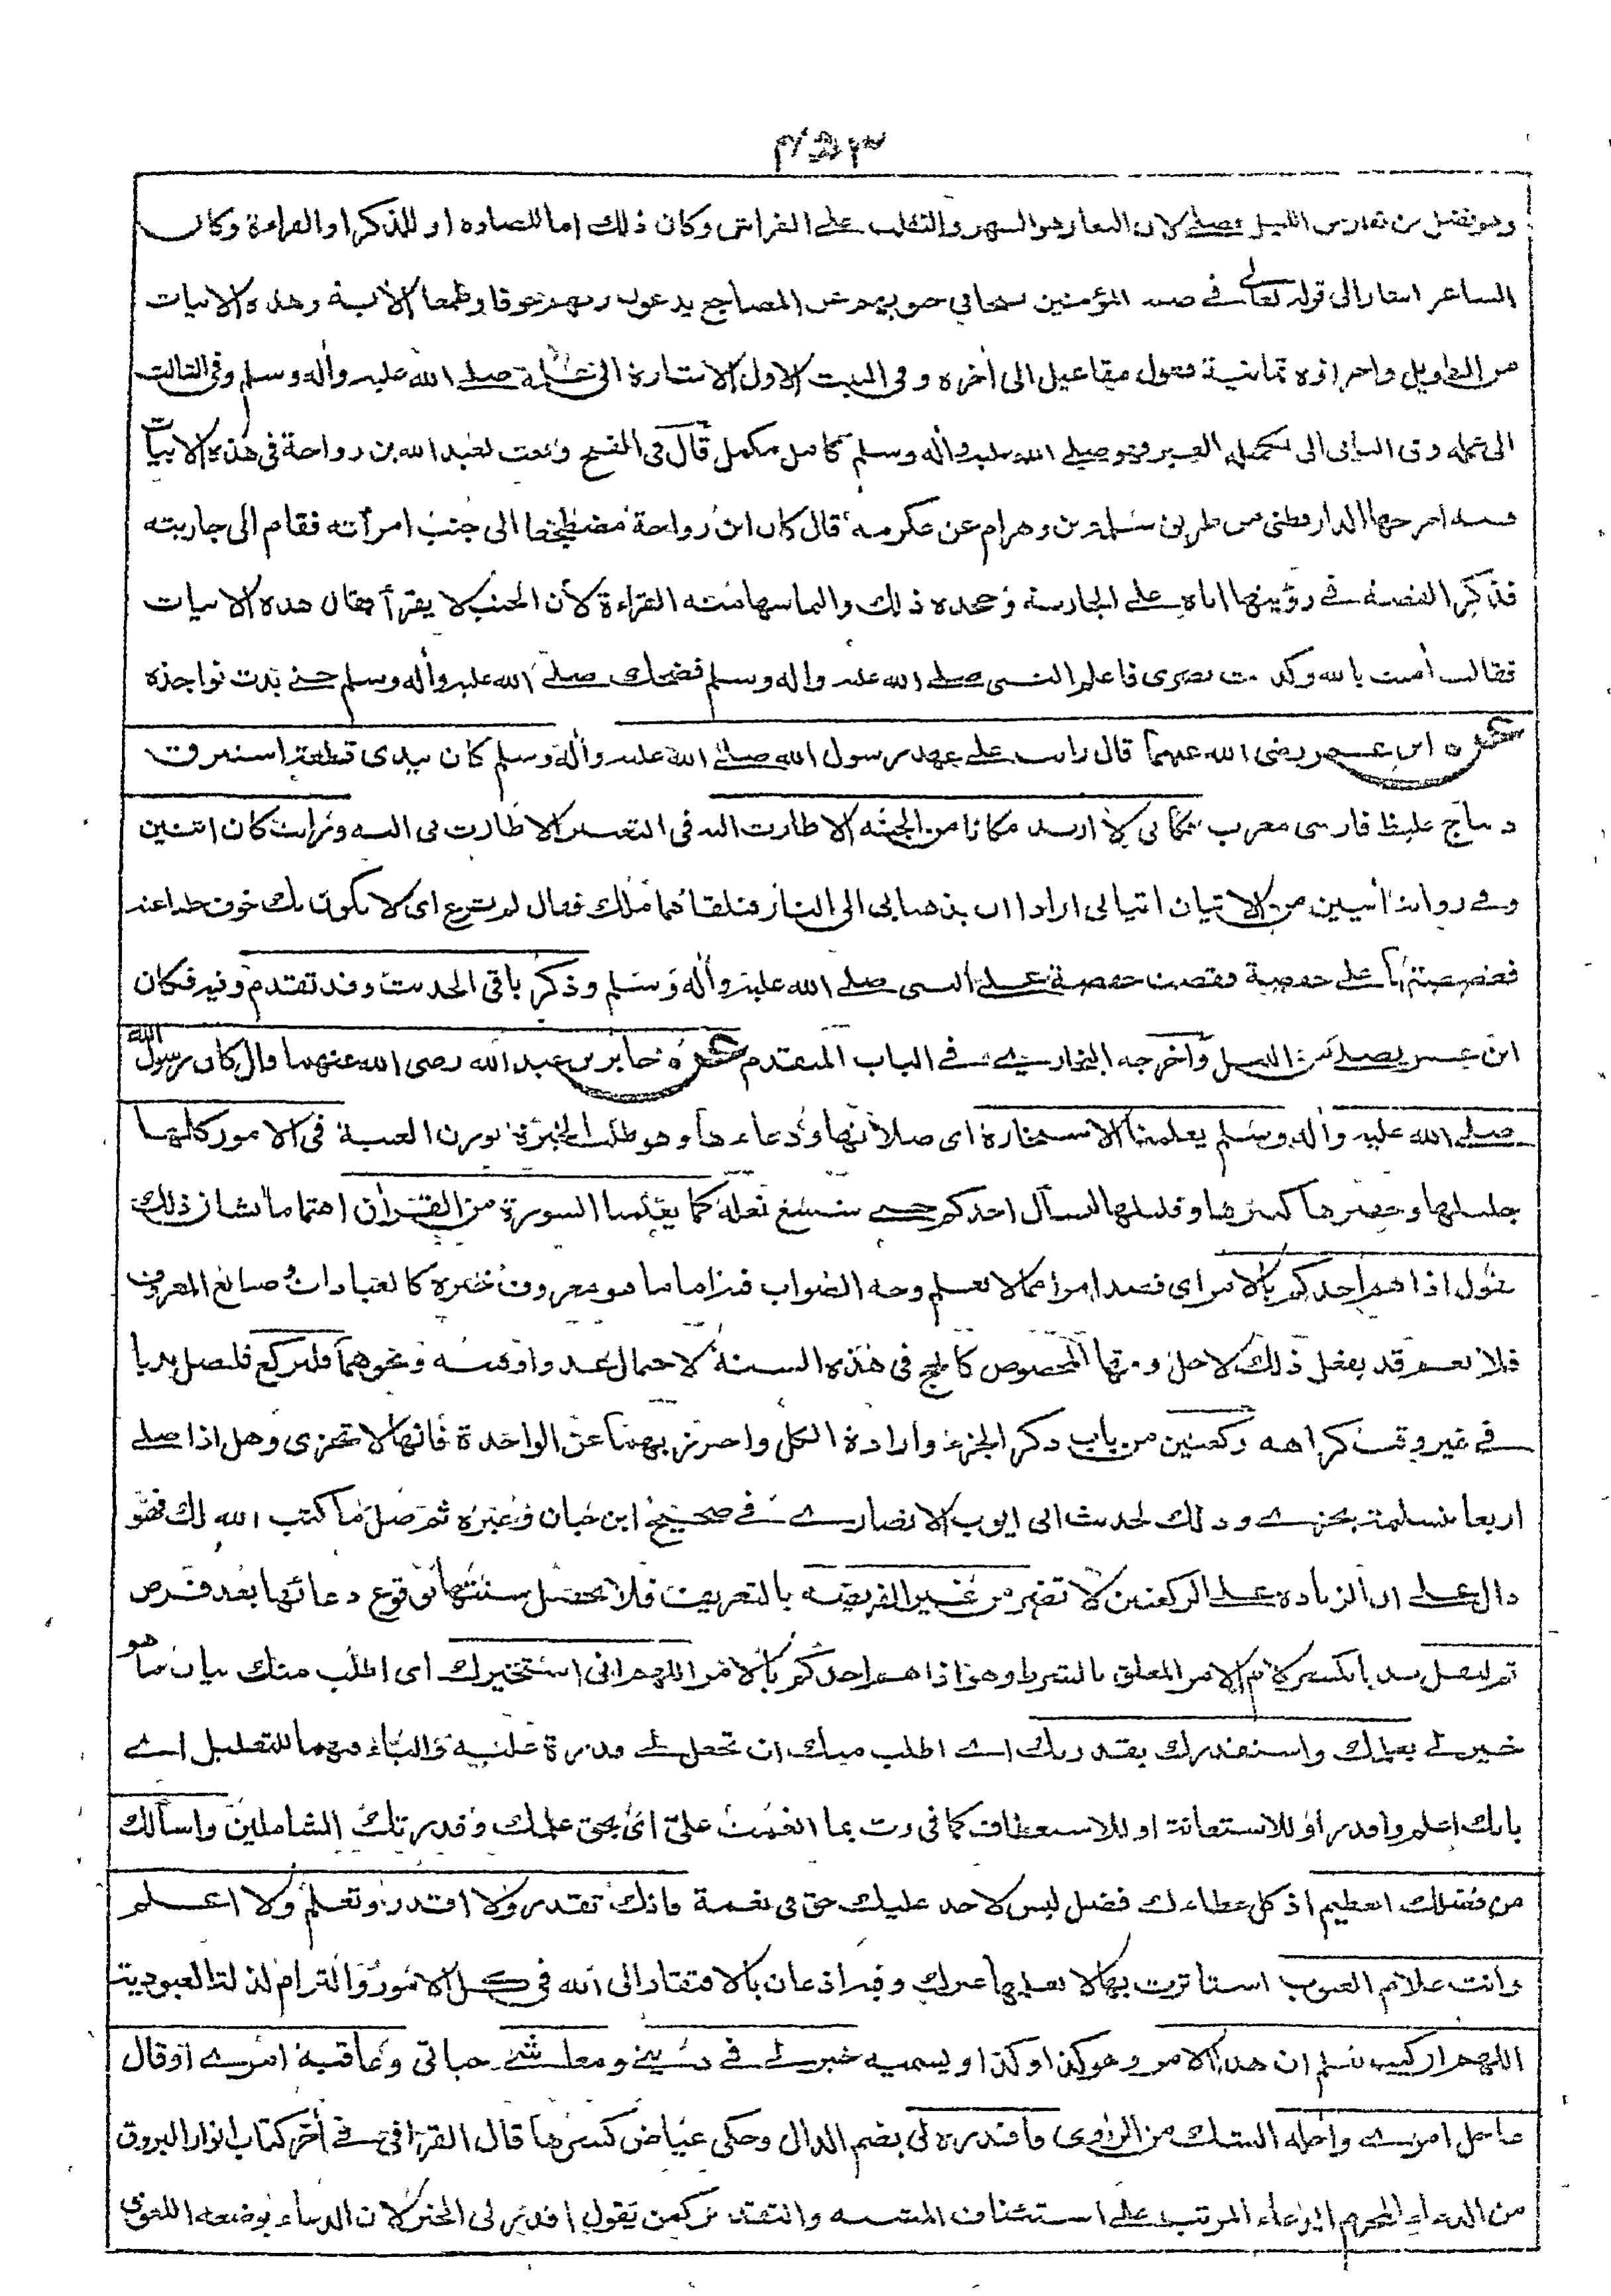 وهو نفضل من تعار من الليل فصلى لان التعار هو السهر والتقلب على الفراش وكان ذلك اما للصلوة او للذكر او القراءة وكان
الشاعر اشار الى قوله تعالى في صفة المؤمنين تتجافى جنوبهم عن المضاجع يدعون ربهم خوفا وطمعا الأية وهذه الابيات
من الطويل واجزاؤه ثمانية فعولن مفاعيلن الى أخره وفى البيت الاول الاشارة الى علمه صلى الله عليه وأله وسلم وفى الثالث
الى عمله وفى الثانى الى تكميله الغير فهو صلى الله عليه وأله وسلم كامل مكمل قال فى الفتح وقعت لعبد الله بن رواحة فى هذه الابيات
قصة اخرجها الدارقطنى من طريق سلمة بن وهرام عن عكرمة قال كان ابن رواحة مضطجعا الى جنب امرأته فقام الى جاريته
فذكر القصة فى رؤيتها اياه على الجارية وجحده ذلك والتماسها منه القراءة لأن الجنب لا يقرأ فقال هذه الابيات
فقالت أمنت بالله وكذبت بصرى فاعلم النبى صلى الله عليه واله وسلم فضحك صلى الله عليه وأله وسلم حتى بدت نواجذه
عن ابن عمر رضى الله عنهما قال رأيت على عهد رسول الله صلى الله عليه وأله وسلم كان بيدى قطعة استبرق
ديباج غليظ فارسى معرب فكأنى لا اريد مكانا من الجنة الا طارت اليه فى التعبير الا طارت بى اليه ورأيت كان اثنين
وفى رواية أتيين من الاتيان اتيانى ارادا ان يذهبا بى الى النار فتلقاهما ملك فقال لم ترع اى لا يكون بك خوف خليا عنه
فقصصتها على حفصة فقصت حفصة على النبى صلى الله عليه وأله وسلم وذكر باقى الحديث وقد تقدم وفيه فكان
ابن عمر يصلى من الليل وأخرجه البخارى فى الباب المتقدم عن جابر بن عبد الله رضى الله عنهما قال كان رسول الله
صلى الله عليه وأله وسلم يعلمنا الاستخارة اى صلاتها ودعاءها وهو طلب الخيرة بوزن العنبة فى الامور كلها
جليلها وحقيرها كثيرها وقليلها ليسأل احدكم حتى شسع نعله كما يعلمنا السورة من القرأن اهتماما بشان ذلك
يقول اذا هم احدكم بالامر اى قصد امرا مما لا يعلم وجه الصواب فيه اما ما هو معروف خيره كالعبادات وصنائع المعروف
فلا نعم قد يفعل ذلك لاجل وقتها المخصوص كالحج فى هذه السنة لاحتمال عدو او فتنه ونحوهما فليركع فليصل ندبا
فى غير وقت كراهه ركعتين من باب ذكر الجزء وارادة الكل واحترز بهما عن الواحدة فانها لا تجزى وهل اذا صلى
اربعا بتسليمة يجزى وذلك لحديث ابى ايوب الانصارى فى صحيح ابن حبان وغيره ثم صل ما كتب الله لك فهو
دال على ان الزيادة على الركعتين لا تضر من غير الفريضه بالتعريف فلا يحصل سنتها بوقوع دعائها بعد فرض
ثم ليقل ندبا بكسر لام الامر المعلق بالشرط وهو اذا هم احدكم بالامر اللهم انى استخيرك اى اطلب منك بيان ما هو
خير لى بعلمك واستقدرك بقدرتك اى اطلب منك ان تجعل لى قدرة عليه والباء فيهما للتعليل اى
بانك اعلم واقدر او للاستعانة او للاستعطاف كما فى رب بما انعمت على اى بحق علمك وقدرتك الشاملين واسألك
من فضلك العظيم اذ كل عطاءك فضل ليس لاحد عليك حق فى نعمة فانك تقدر ولا اقدر وتعلم ولا اعلم
وانت علام الغيوب استاثرت بها لا يعلمها غيرك وفيه اذعان بالافتقار الى الله فى كل الامور والتزام لذلة العبودية
اللهم ان كنت تعلم ان هذا الامر وهو كذا وكذا او يسميه خير لى فى دينى ومعاشى حياتى وعاقبة امرى او قال
عاجل امرى واجله الشك من الراوى فاقدره لى بضم الدال وحكى عياض كسرها قال القرافى فى أخر كتاب انوار البروق
من الدعاء المحرم الدعاء المرتب على استئناف المشيه والتقدير كمن يقول اقدر لى الخير لان الدعاء بوضعه اللغوى